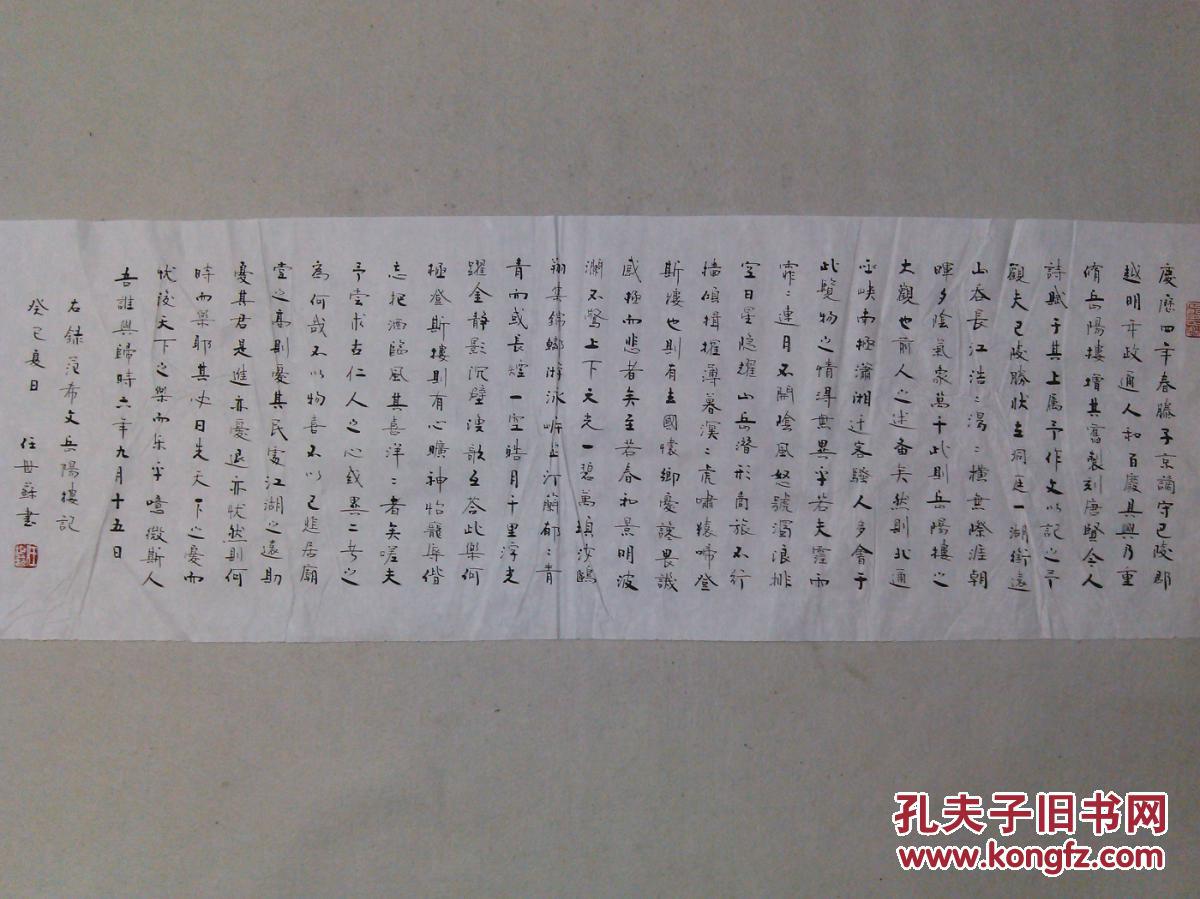 慶歷四年春滕子京謫守巴陵郡
越明年政通人和百廢具興乃重
脩岳陽樓增其舊製刻唐賢今人
詩賦于其上屬予作文以記之予
觀夫巴陵勝狀在洞庭一湖銜遠
山吞長江浩〻湯〻橫無際涯朝
暉夕陰氣象萬千此則岳陽樓之
大觀也前人之述備矣然則北通
巫峽南極瀟湘迁客騷人多會于
此覽物之情得無異乎若夫霪雨
霏〻連月不開陰風怒號濁浪排
空日星隱耀山岳潛形商旅不行
檣傾楫摧薄暮溟〻虎嘯猿啼登
斯樓也則有去國懷鄉憂讒畏譏
感極而悲者矣至若春和景明波
瀾不驚上下天光一碧萬頃沙鷗
翔集錦鱗游泳岸芷汀蘭郁〻青
青而或長煙一空皓月千里浮光
躍金靜影沉璧漁歌互答此樂何
極登斯樓則有心曠神怡寵辱偕
忘把酒臨風其喜洋〻者矣嗟夫
予嘗求古仁人之心或異二者之
為何哉不以物喜不以己悲居廟
堂之高則憂其民處江湖之遠則
憂其君是進亦憂退亦忧然則何
時而樂耶其必曰先天下之憂而
忧後天下之樂而乐乎噫微斯人
吾誰與歸時六年九月十五日
右録范希文岳陽樓記
癸巳夏日 任世蘇書
孔夫子旧书网
www.kongfz.com